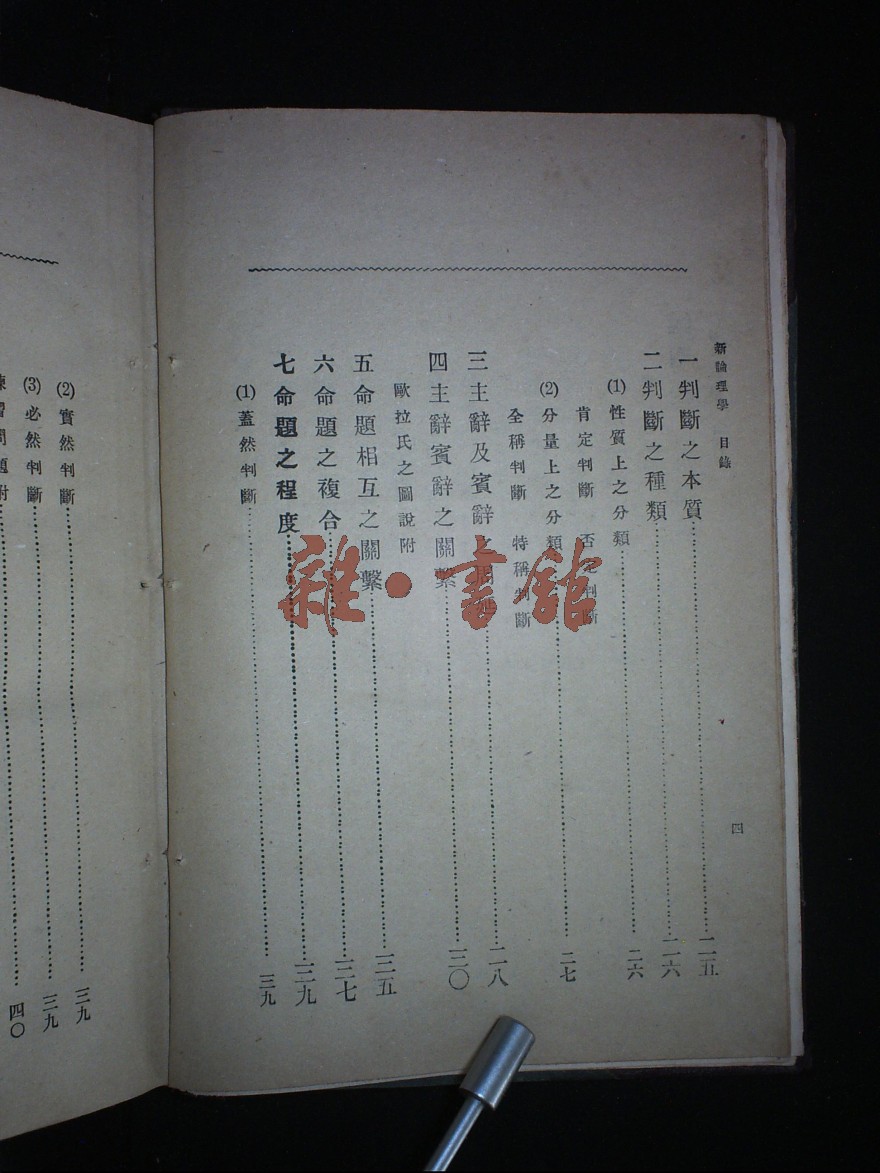 新論理學 目錄
四
一 判斷之本質……二五
二 判斷之種類……二六
(1) 性質上之分類……二六
肯定判斷 否定判斷
(2) 分量上之分類……二七
全稱判斷 特稱判斷
三 主辭及賓辭之周延……二八
四 主辭賓辭之關繫……三〇
歐拉氏之圖說附
五 命題相互之關繫……三五
六 命題之複合……三七
七 命題之程度……三九
(1) 蓋然判斷……三九
(2) 實然判斷……三九
(3) 必然判斷……三九
練習問題附……四〇
雜·書館